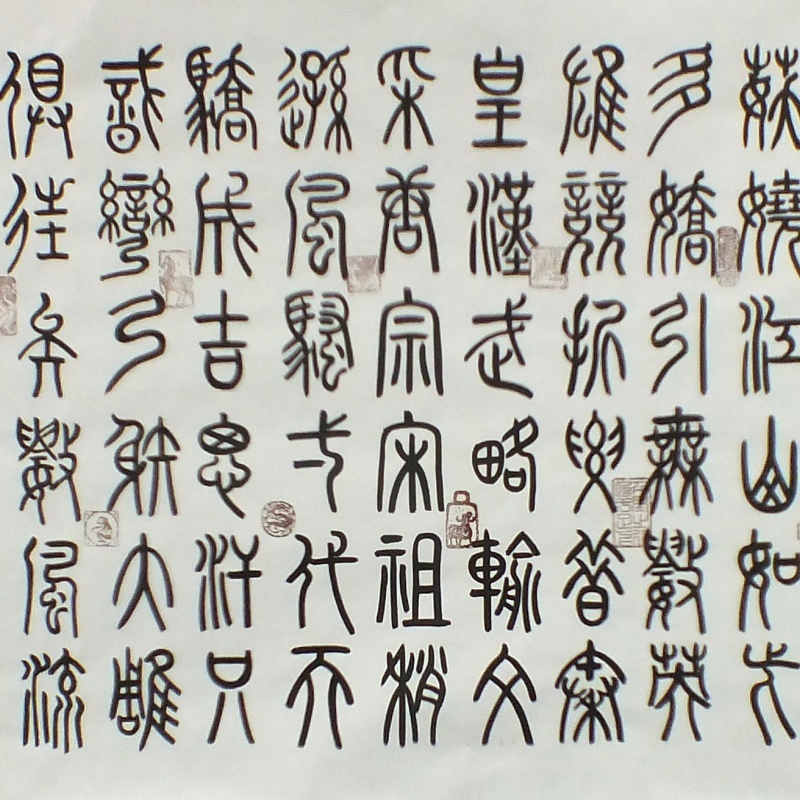 妖嬈江山如此
多嬌引無數英
雄競折腰昔秦
皇漢武略輸文
采唐宗宋祖稍
遜風騷弌代天
驕成吉思汗只
識彎弓射大雕
俱往矣數風流